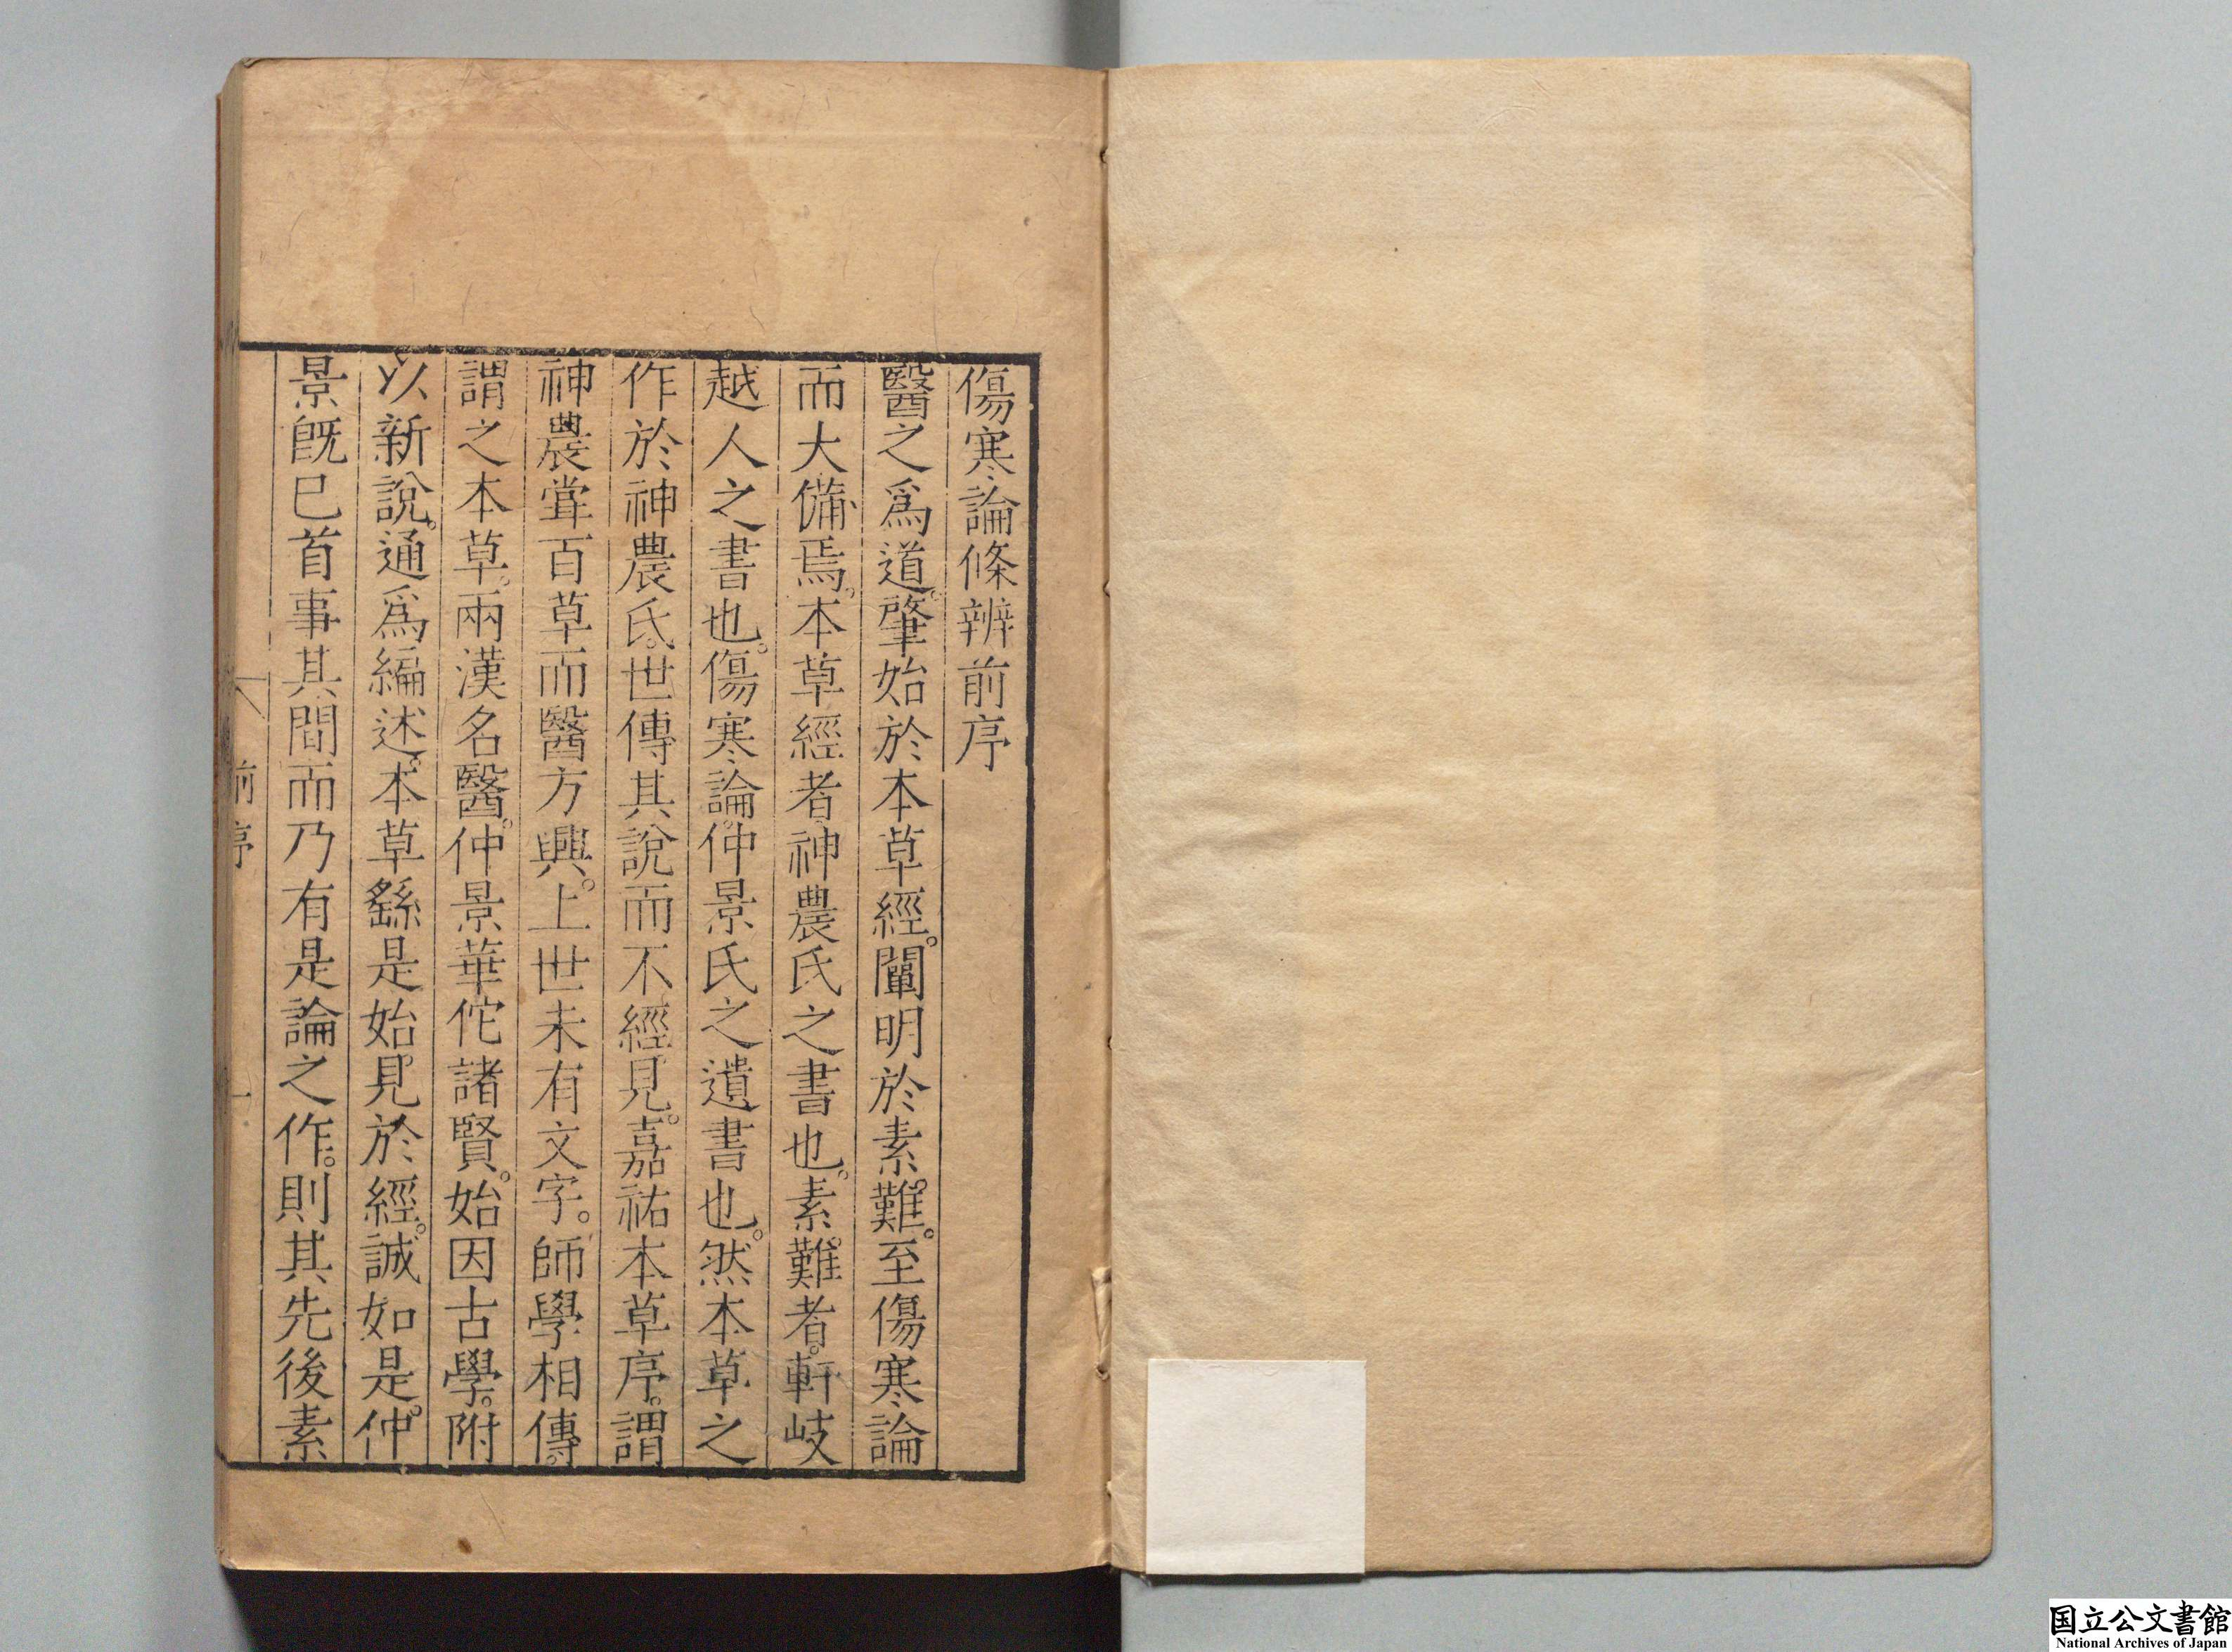 傷寒論條辨前序
醫之爲道。肇始於本草經。闡明於素難。至傷寒論
而大備焉。本草經者神農氏之書也。素難者。軒岐
越人之書也。傷寒論。仲景氏之遺書也。然本草之
作於神農氏。世傳其說而不經見。嘉祐本草序。謂
神農甞百草而醫方興。上世未有文字。師學相傳。
謂之本草。兩漢名醫。仲景華佗諸賢。始因古學。附
以新說。通爲編述。本草繇是始見於經。誠如是。仲
景旣巳首事其間而乃有是論之作。則其先後素
前序
一
国立公文書館
National Archives of Japan